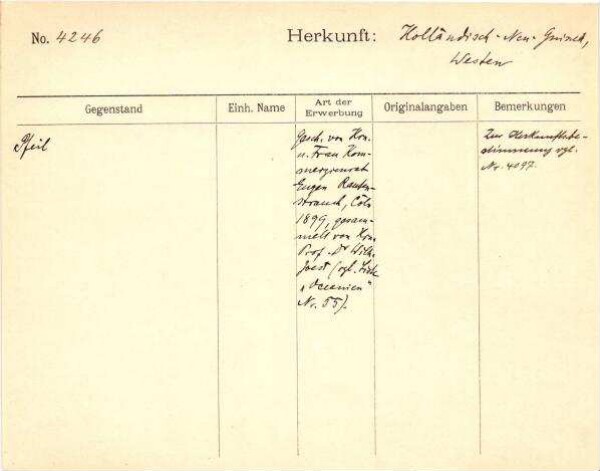 No. 4246
Herkunft: Holländisch-Neu-Guinea,
Westen
Gegenstand
Einh. Name
Art der
Erwerbung
Originalangaben
Bemerkungen
Pfeil
Gesch. von Hrn.
u. Frau Kom-
merzienrat
Eugen Rauten-
strauch, Cöln
1899, gesam-
melt von Hrn.
Prof. Dr Wilh.
Joest (vgl. Liste
„Oceanien"
Nr. 55).
Zur Herkunftsbe-
stimmung vgl.
Nr. 4097.